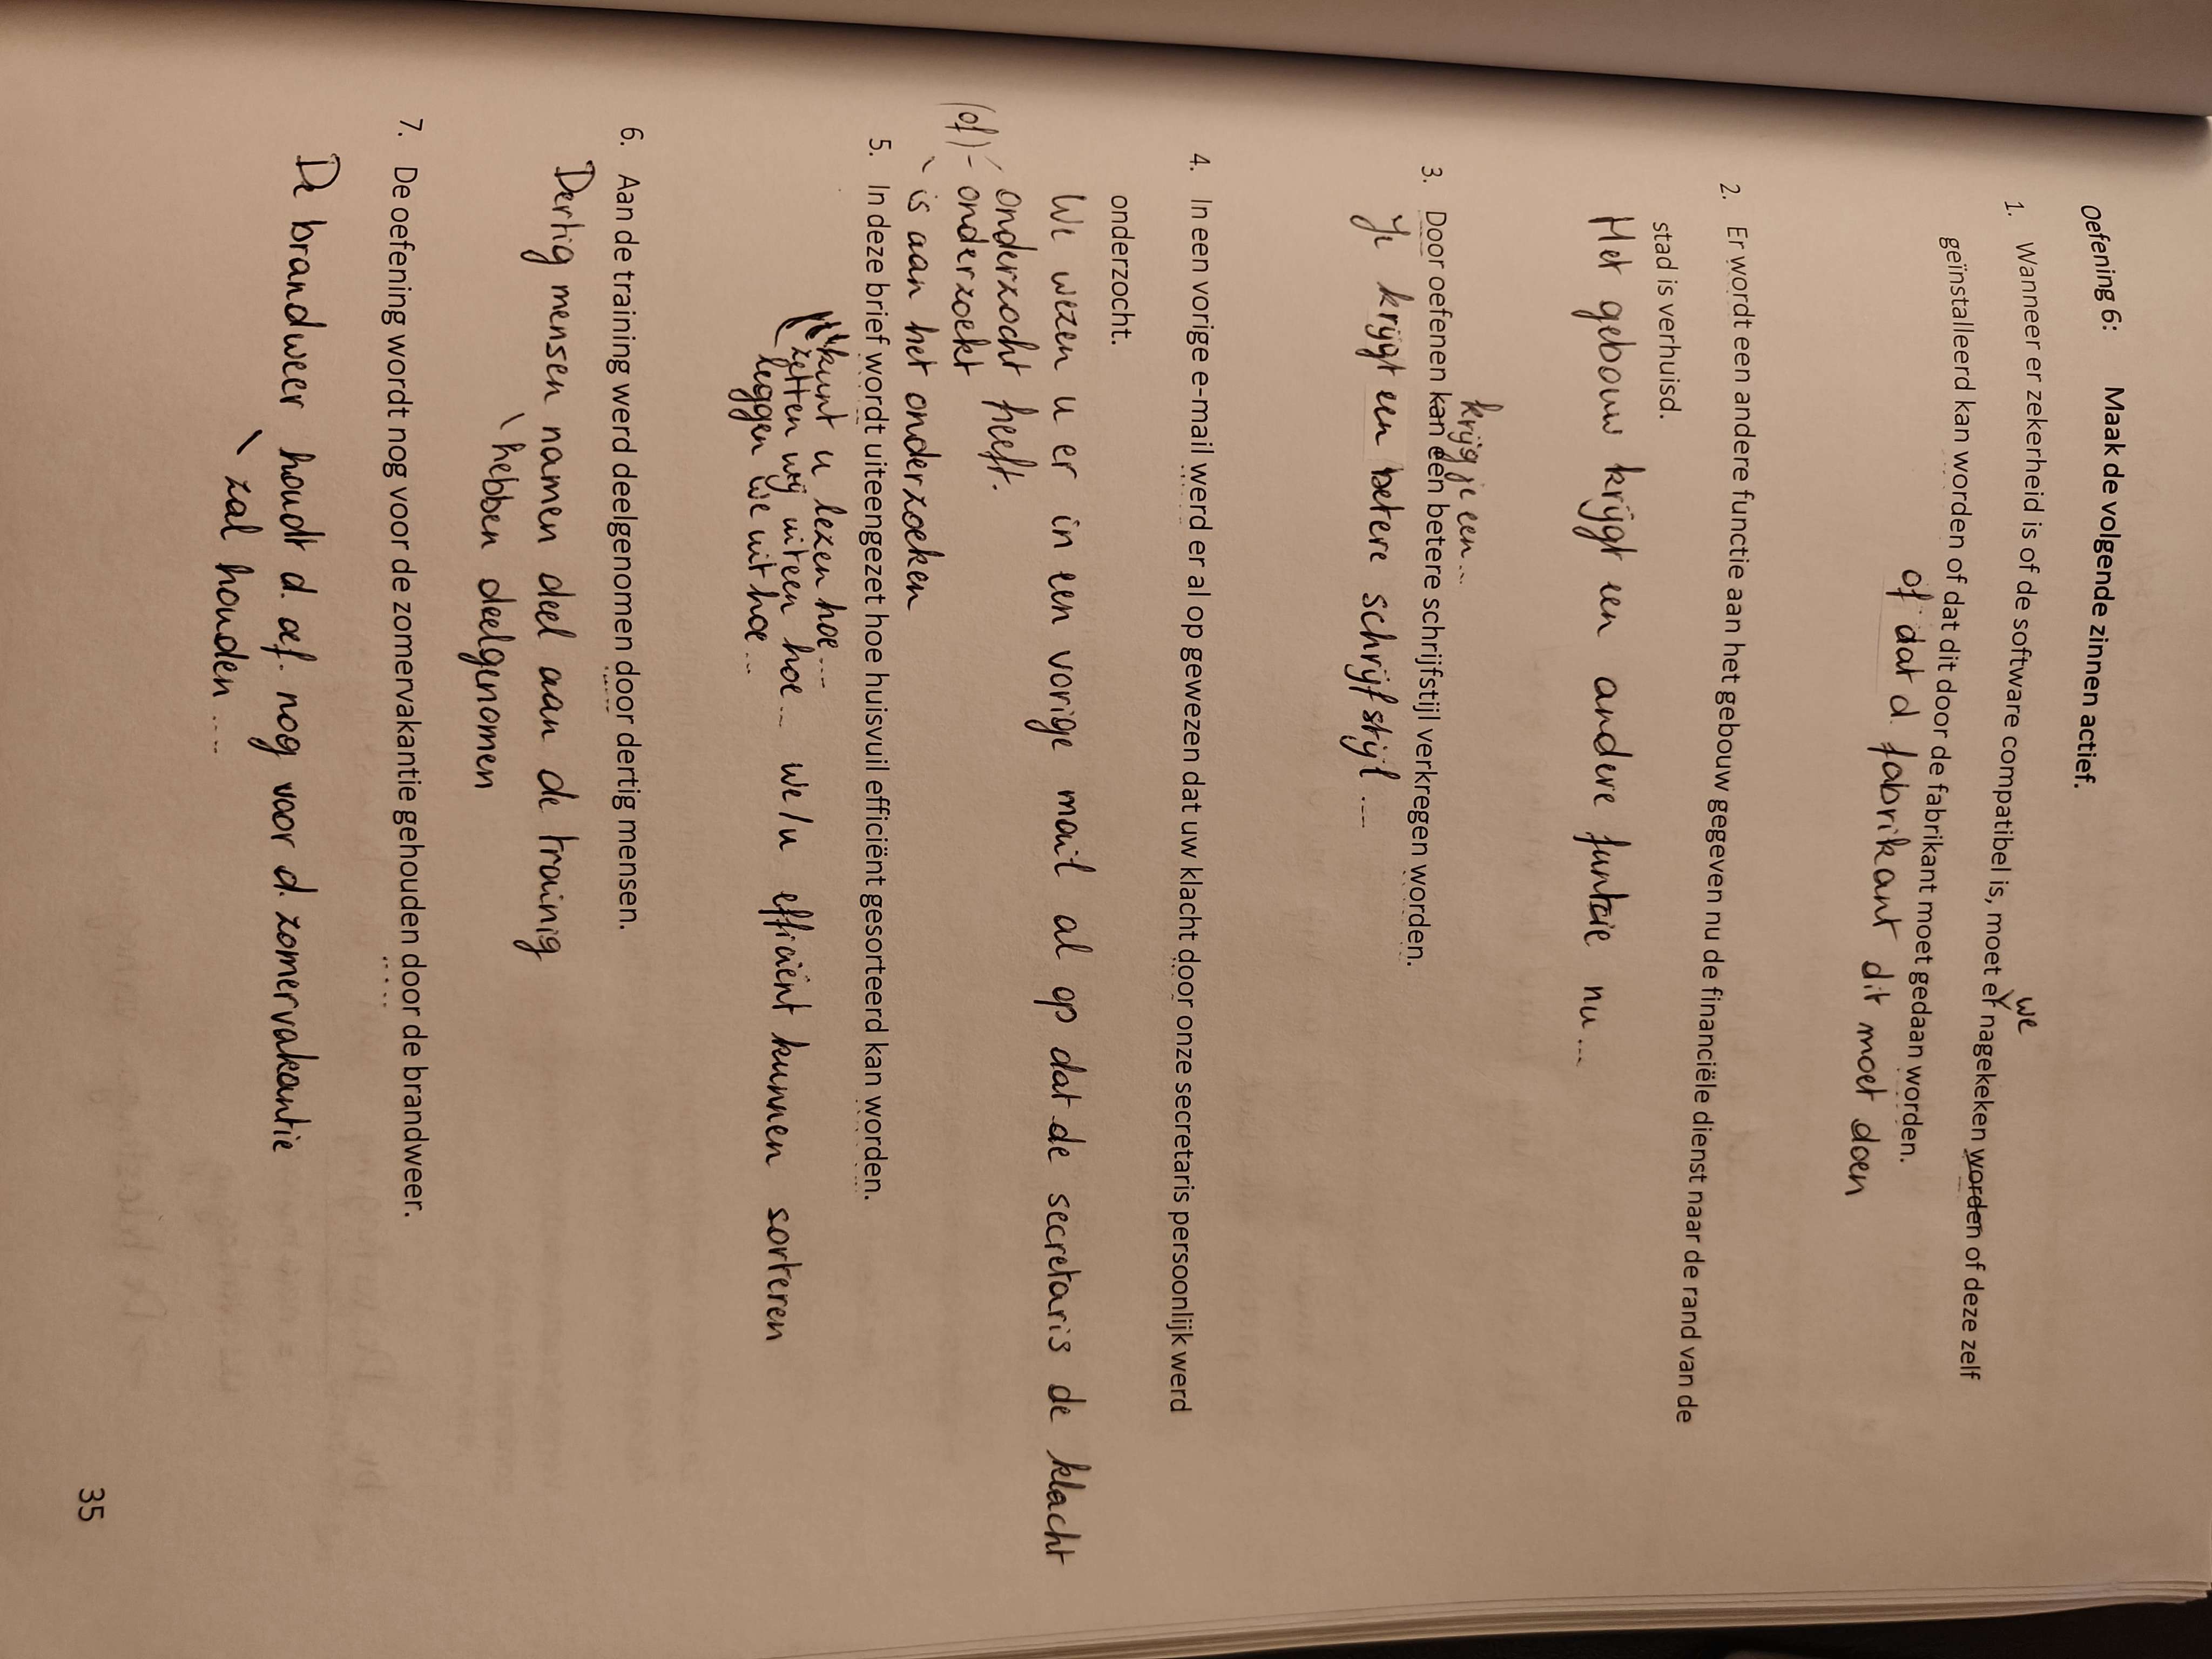 Oefening 6: Maak de volgende zinnen actief.
we
1. Wanneer er zekerheid is of de software compatibel is, moet er nagekeken worden of deze zelf
geïnstalleerd kan worden of dat dit door de fabrikant moet gedaan worden.
of dat d. fabrikant dit moet doen
2. Er wordt een andere functie aan het gebouw gegeven nu de financiële dienst naar de rand van de
stad is verhuisd.
Het gebouw krijgt een andere funtcie nu ...
krijg je een ...
3. Door oefenen kan een betere schrijfstijl verkregen worden.
Je krijgt een betere schrijfstijl ...
4. In een vorige e-mail werd er al op gewezen dat uw klacht door onze secretaris persoonlijk werd
onderzocht.
We wezen u er in een vorige mail al op dat de secretaris de klacht
onderzocht heeft.
(of) - onderzoekt
is aan het onderzoeken
5. In deze brief wordt uiteengezet hoe huisvuil efficiënt gesorteerd kan worden.
kunt u lezen hoe ...
zetten wij uiteen hoe ... we/u efficiënt kunnen sorteren
leggen we uit hoe ...
6. Aan de training werd deelgenomen door dertig mensen.
Dertig mensen namen deel aan de trainig
\ hebben deelgenomen
7. De oefening wordt nog voor de zomervakantie gehouden door de brandweer.
De brandweer houdt d. oef. nog voor d. zomervakantie
\ zal houden ....
35